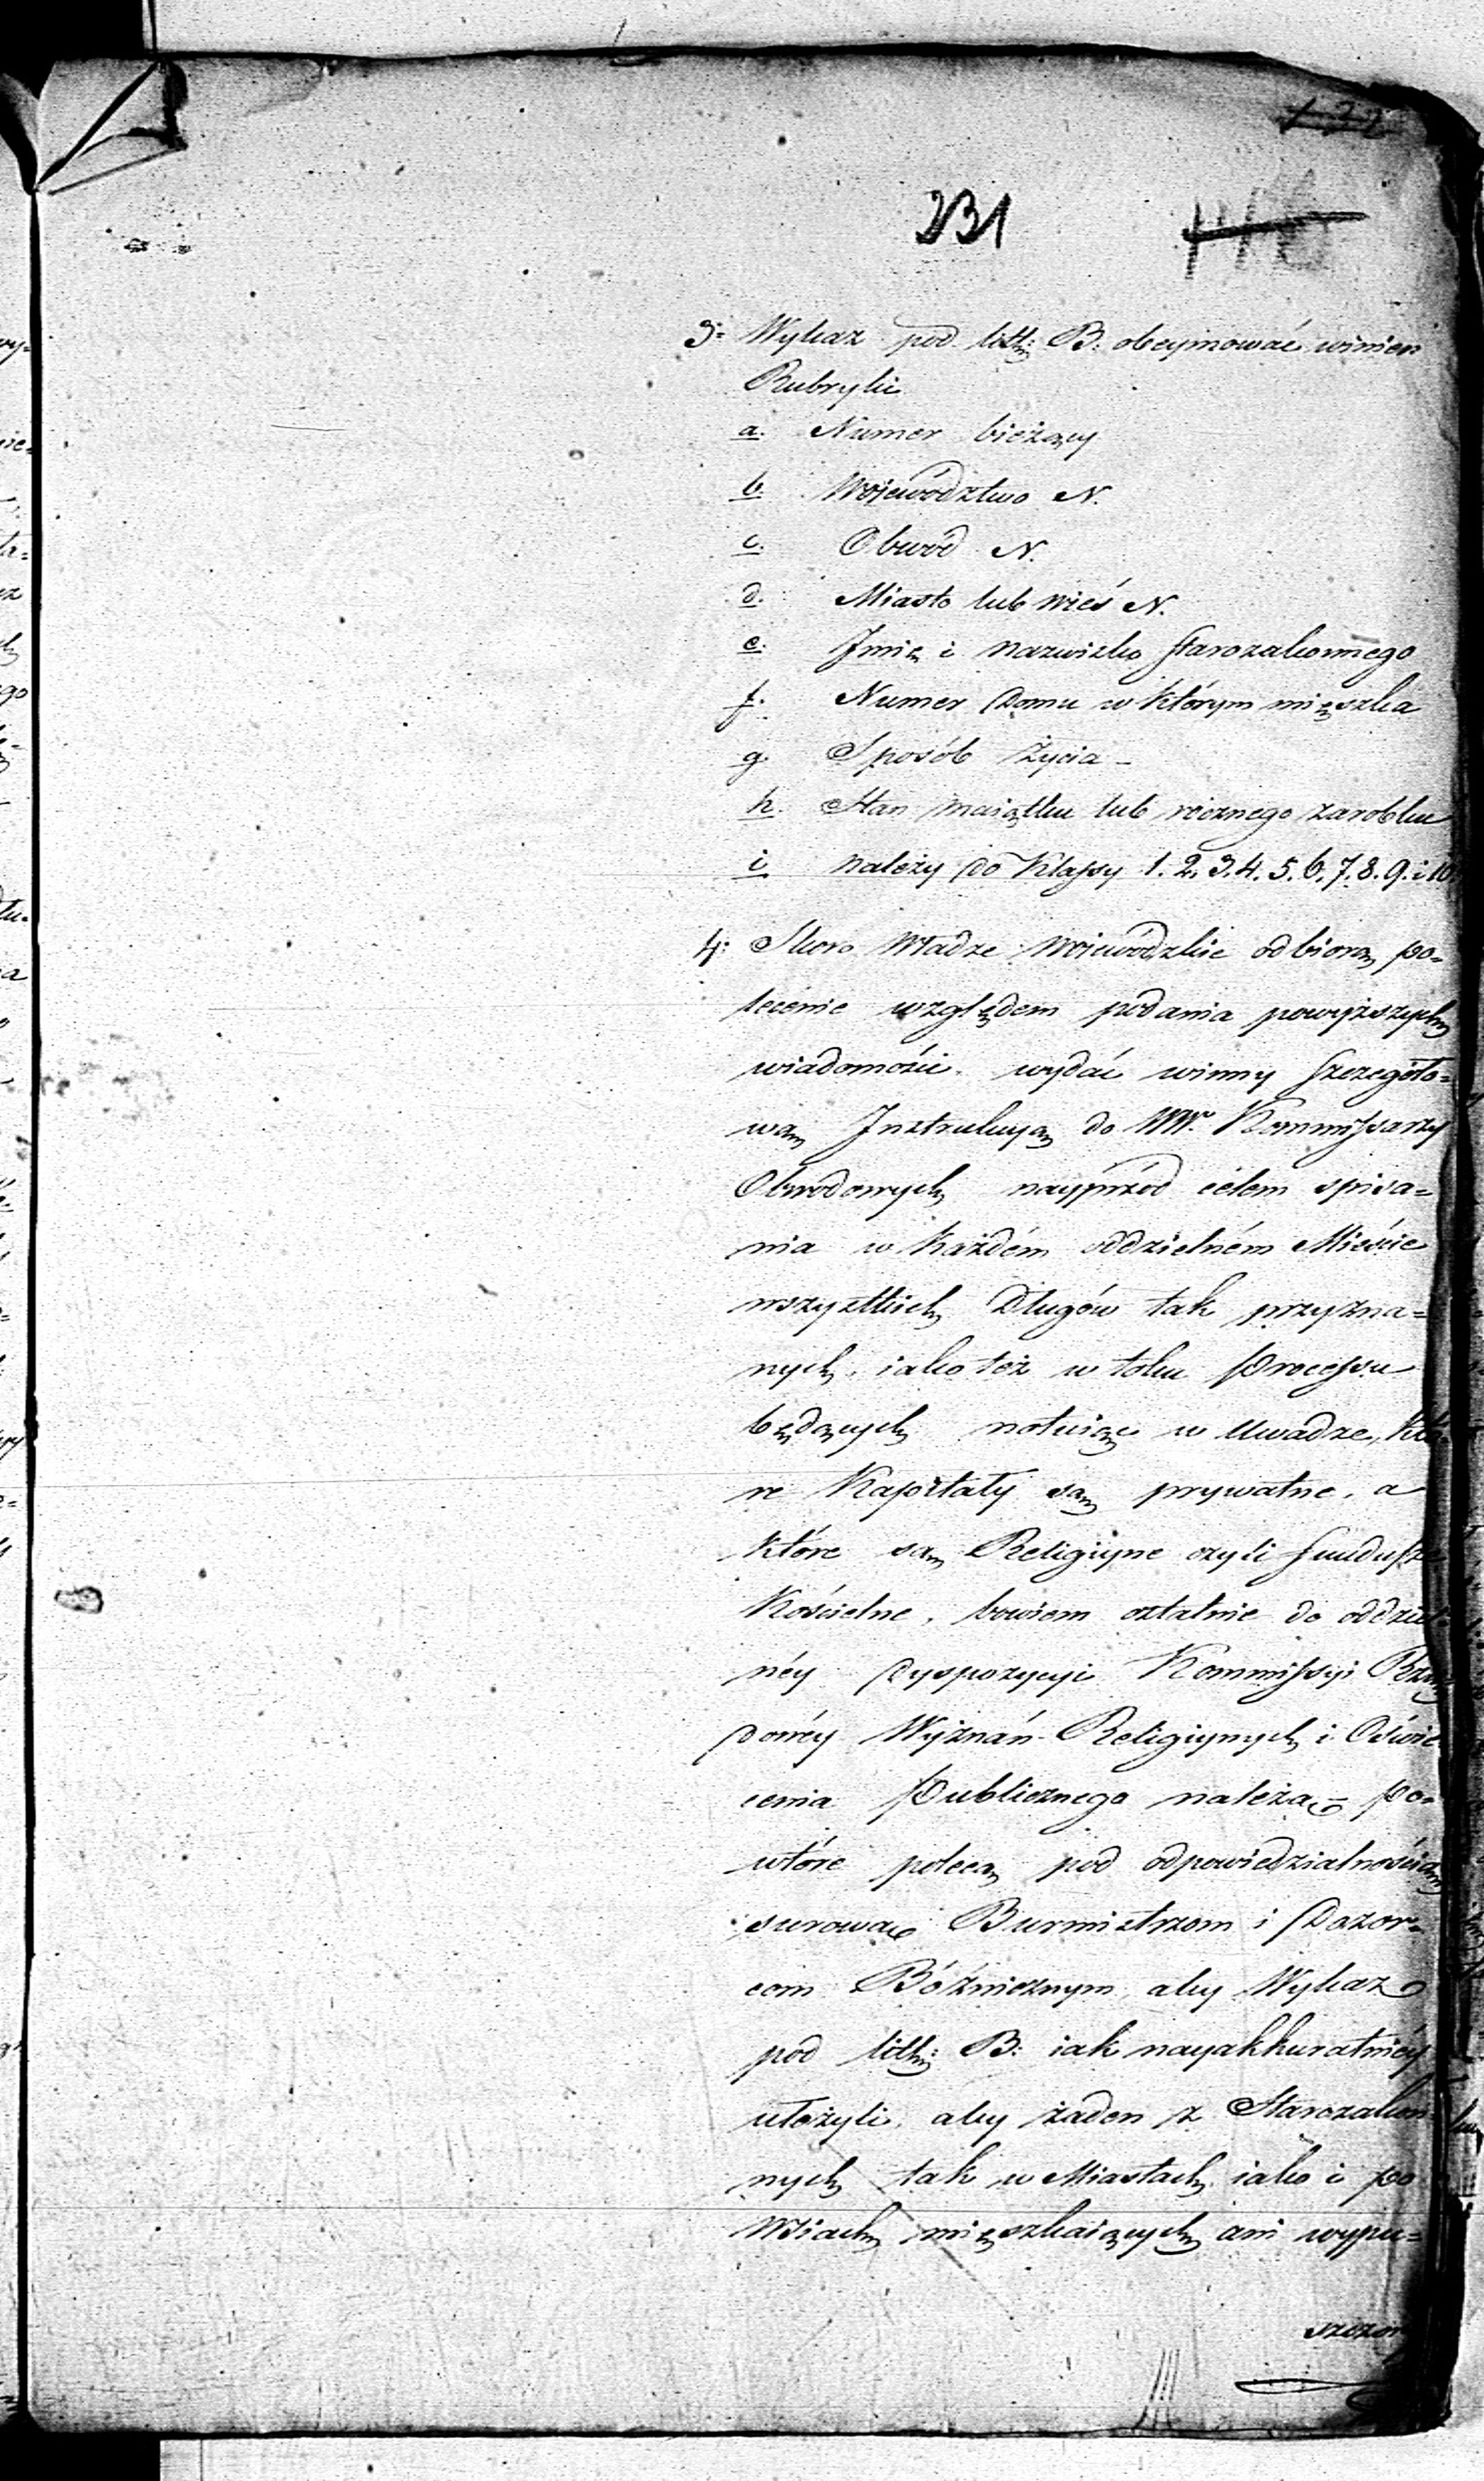 231
3= Wykaz pod litt: B: obeymować winien
Rubryki
a. Numer bieżący
b. Województwo N.
c. Obwód N.
d. Miasto lub wieś N.
e. Jmię i nazwisko Starozakonnego
f. Numer Domu w którym mięszka
g. Sposób życia –
h. Stan maiątku lub rocznego zarobku
i należy do Klassy 1. 2. 3. 4. 5. 6. 7. 8. 9. i 10
4: Skoro Władze Woiewódzkie odbiorą po=
lecenie względem podania powyższych
wiadomości. wydać winny szczegóło=
wą Jnstrukcyą do WW. Kommissarzy
Obwodowych nayprzód celem spisa=
nia w każdém oddzielném Mieście
wszystkich Długów tak przyzna=
nych, iako też w toku Processu
będących notuiąc w uwadze, któ
re Kapitały są prywatne, a
które są Religiyne czyli fundusze
Kościelne, bowiem ostatnie do oddziel
néy dyspozycyi Kommissyi Rzą
dowéy Wyznań Religiynych i Oświe
cenia Publicznego należą – po=
wtóre polecą pod odpowiedzialnością
surową Burmistrzom i Dozor=
com Bóżnicznym, aby Wykaz
pod litt: B: iak nayakkuratniéy
ułożyli, aby żaden z Starozakon
nych tak w Miastach iako i po
Wsiach mięszkaiących ani wypu=